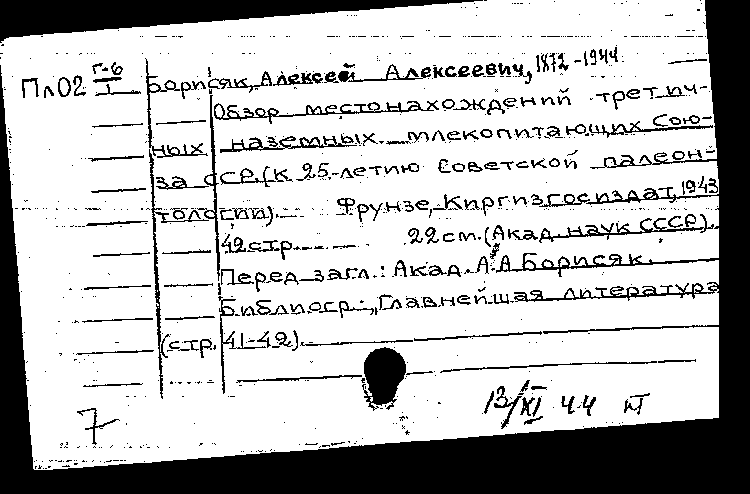 Пл02 Г-6/I Борисяк, Алексей Алексеевич, 1872-1944
Обзор местонахождений третич-
ных наземных млекопитающих Сою-
за ССР. (К 25-летию Советской палеон-
тологии). Фрунзе, Киргизгосиздат, 1943
42 стр. 22 см. (Акад. наук СССР).
Перед загл.: Акад. А.А Борисяк.
Библиогр.: „Главнейшая литература
(стр. 41-42).
13/XI 44 кт
7